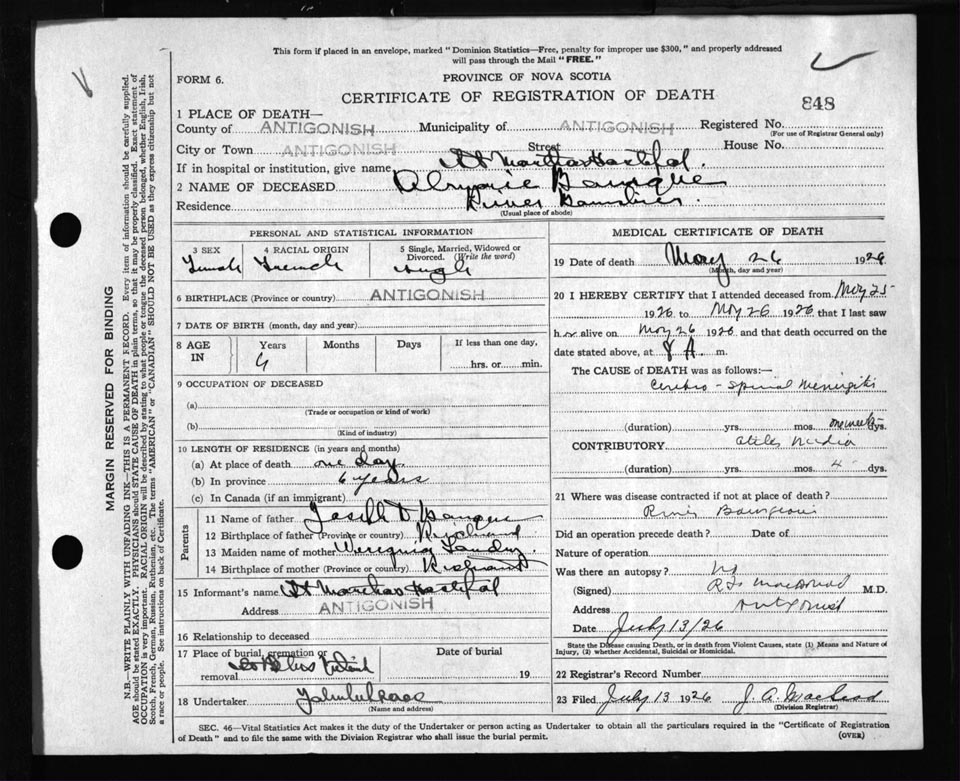 This form if placed in an envelope, marked "Dominion Statistics—Free, penalty for improper use $300," and properly addressed
will pass through the Mail "FREE."
FORM 6.
PROVINCE OF NOVA SCOTIA
CERTIFICATE OF REGISTRATION OF DEATH
848
1 PLACE OF DEATH—
County of ANTIGONISH Municipality of ANTIGONISH Registered No.
(For use of Registrar General only)
City or Town ANTIGONISH Street House No.
If in hospital or institution, give name St Marthas Hospital.
2 NAME OF DECEASED
Residence River
(Usual place of abode)
PERSONAL AND STATISTICAL INFORMATION
3 SEX 4 RACIAL ORIGIN 5 Single, Married, Widowed or Divorced. (Write the word)
Female French Single
6 BIRTHPLACE (Province or country) ANTIGONISH
7 DATE OF BIRTH (month, day and year)
8 AGE IN Years Months Days If less than one day,
hrs. or min.
9 OCCUPATION OF DECEASED
(a)
(Trade or occupation or kind of work)
(b)
(Kind of industry)
10 LENGTH OF RESIDENCE (in years and months)
(a) At place of death one day
(b) In province 6 years
(c) In Canada (if an immigrant)
Parents
11 Name of father Joseph
12 Birthplace of father (Province or country)
13 Maiden name of mother Landry
14 Birthplace of mother (Province or country)
15 Informant's name St Marthas Hospital
Address ANTIGONISH
16 Relationship to deceased
17 Place of burial, cremation or removal Date of burial
19
18 Undertaker
(Name and address)
MEDICAL CERTIFICATE OF DEATH
19 Date of death May 26 1926
(Month, day and year)
20 I HEREBY CERTIFY that I attended deceased from May 25
1926 to May 26 1926 that I last saw
her alive on May 26 1926 and that death occurred on
date stated above, at 8 A. m.
The CAUSE of DEATH was as follows:—
Cerebro-Spinal Meningitis
(duration) yrs. mos. one week dys.
CONTRIBUTORY Otitis Media
(duration) yrs. mos. 4 dys.
21 Where was disease contracted if not at place of death?
River Bourgeois
Did an operation precede death? Date of
Nature of operation
Was there an autopsy? No
(Signed) MacDonald M.D.
Address Antigonish
Date July 13/26
State the Disease causing Death, or in death from Violent Causes, state (1) Means and Nature of
Injury, (2) whether Accidental, Suicidal or Homicidal.
22 Registrar's Record Number
23 Filed July 13 1926 J. A. MacLeod
(Division Registrar)
SEC. 46—Vital Statistics Act makes it the duty of the Undertaker or person acting as Undertaker to obtain all the particulars required in the "Certificate of Registration
of Death" and to file the same with the Division Registrar who shall issue the burial permit.
(OVER)
MARGIN RESERVED FOR BINDING
N.B.—WRITE PLAINLY WITH UNFADING INK—THIS IS A PERMANENT RECORD. Every item of information should be carefully supplied.
AGE should be stated EXACTLY. PHYSICIANS should STATE CAUSE OF DEATH in plain terms, so that it may be properly classified. Exact statement of
OCCUPATION is very important. RACIAL ORIGIN will be described by stating to what people or tongue the deceased person belonged, whether English, Irish,
Scotch, French, German, Russian, Ruthenian, etc. The terms "AMERICAN" or "CANADIAN" SHOULD NOT BE USED as they express citizenship but not
a race or people. See instructions on back of Certificate.